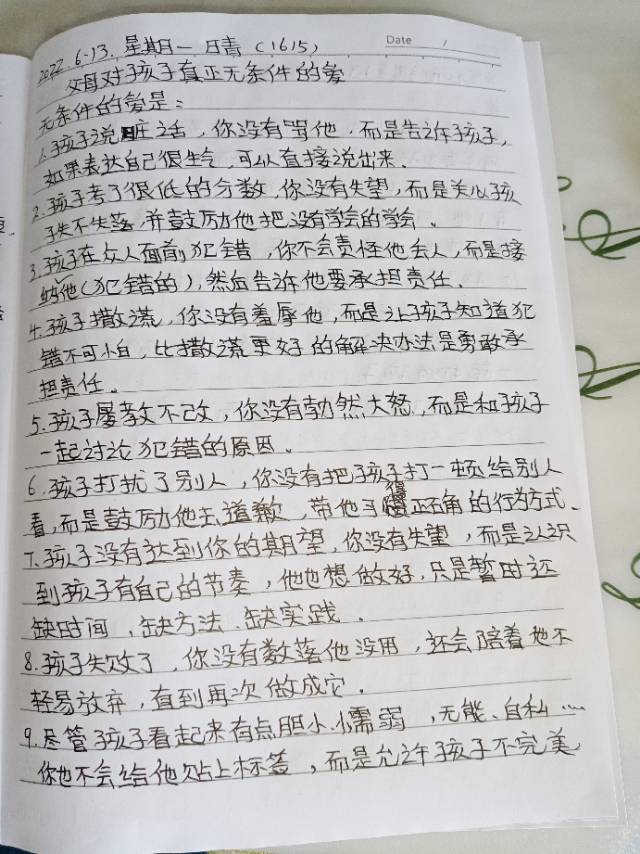 Date /
2022.6-13.星期一 日青(1615)
父母对孩子真正无条件的爱
无条件的爱是:
1.孩子说脏话,你没有骂他.而是告诉孩子,
如果表达自己很生气,可以直接说出来.
2.孩子考了很低的分数,你没有失望,而是关心孩
子失不失落,并鼓励他把没有学会的学会.
3.孩子在众人面前犯错,你不会责怪他丢人,而是接
纳他(犯错的),然后告诉他要承担责任.
4.孩子撒谎,你没有羞辱他,而是让孩子知道犯
错不可怕,比撒谎更好的解决办法是勇敢承
担责任。
5.孩子屡教不改,你没有勃然大怒,而是和孩子
一起讨论犯错的原因。
6.孩子打扰了别人,你没有把孩子打一顿给别人
看,而是鼓励他去道歉,带他习得正确的行为方式.
7.孩子没有达到你的期望,你没有失望,而是认识
到孩子有自己的节奏,他也想做好,只是暂时还
缺时间、缺方法、缺实践.
8.孩子失败了,你没有数落他没用,还会陪着他不
轻易放弃,直到再次做成它.
9.尽管孩子看起来有点胆小、懦弱,无能、自私……
你也不会给他贴上标签,而是允许孩子不完美